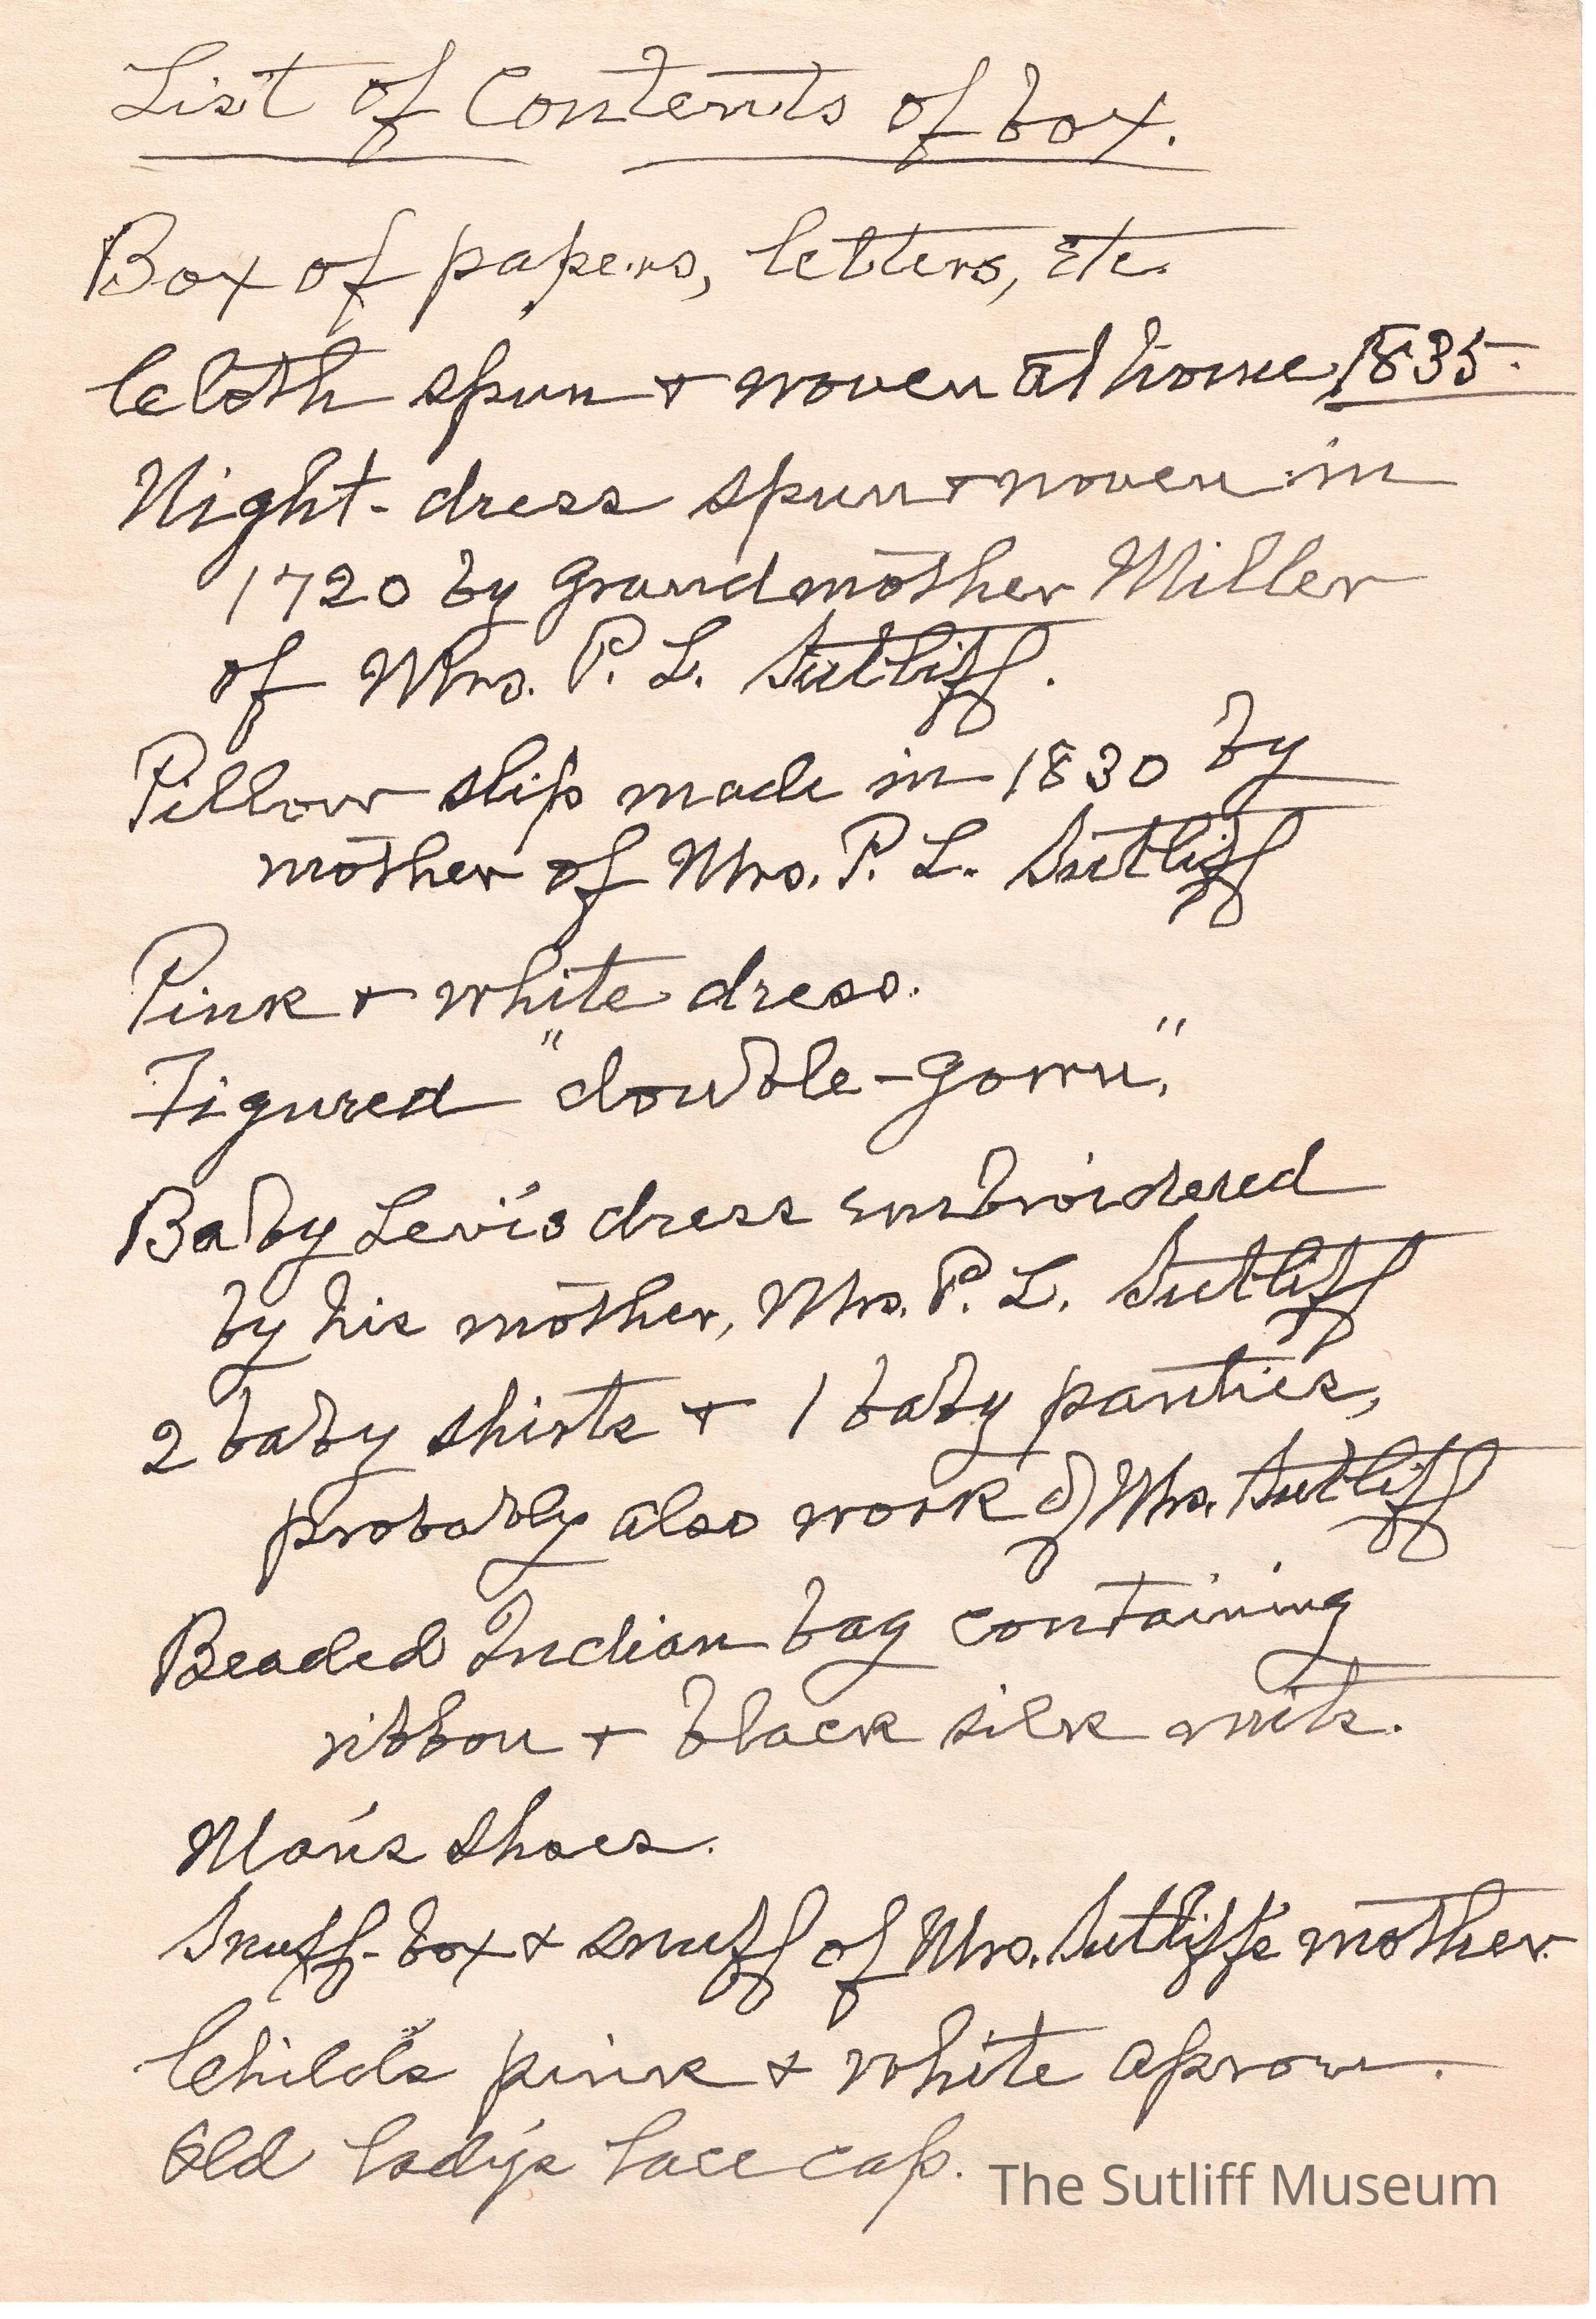 List of Contents of box.
Box of papers, letters, etc.
Cloth spun + woven at home 1835.
Night-dress spun + woven in
1720 by Grandmother Miller
of Mrs. P. L. Sutliff.
Pillow slip made in 1830 by
mother of Mrs. P. L. Sutliff
Pink + white dress.
Figured "double-gown",
Baby Levi's dress embroidered
by his mother, Mrs. P. L. Sutliff
2 baby shirts + 1 baby panties,
probably also work of Mrs. Sutliff
Beaded Indian bag containing
ribbon + black silk mits.
Man's shoes.
Snuff-box + snuff of Mrs. Sutliff's mother.
Child's pink + white apron.
Old lady's lace cap.
The Sutliff Museum